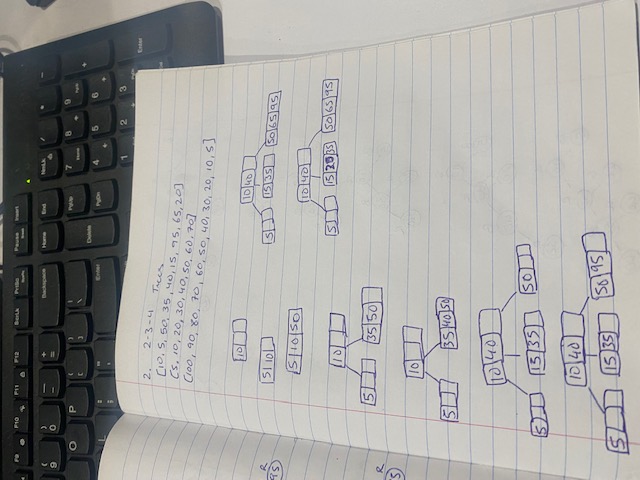 F9 F10 F11 F12 ScrLk PrtSc Pause Insert
( 9 ) 0 _ - + = Backspace Home End NmLk / *
O P { [ } ] | \ PgUp 7 Home 8 9 +
Enter Delete PgDn 4 5 6
1 2 3 Enter
0
2. 2-3-4 Trees
[10, 5, 50, 35, 40, 15, 95, 65, 20]
[5, 10, 20, 30, 40, 50, 60, 70]
[100, 90, 80, 70, 60, 50, 40, 30, 20, 10, 5]
10
5 10
5 10 50
10
5 35 50
10
5 35 40 50
10 40
5 15 35 50
10 40
5 15 35 50 95
10 40
5 15 35 50 65 95
10 40
5 15 20 35 50 65 95
R
95
R
5